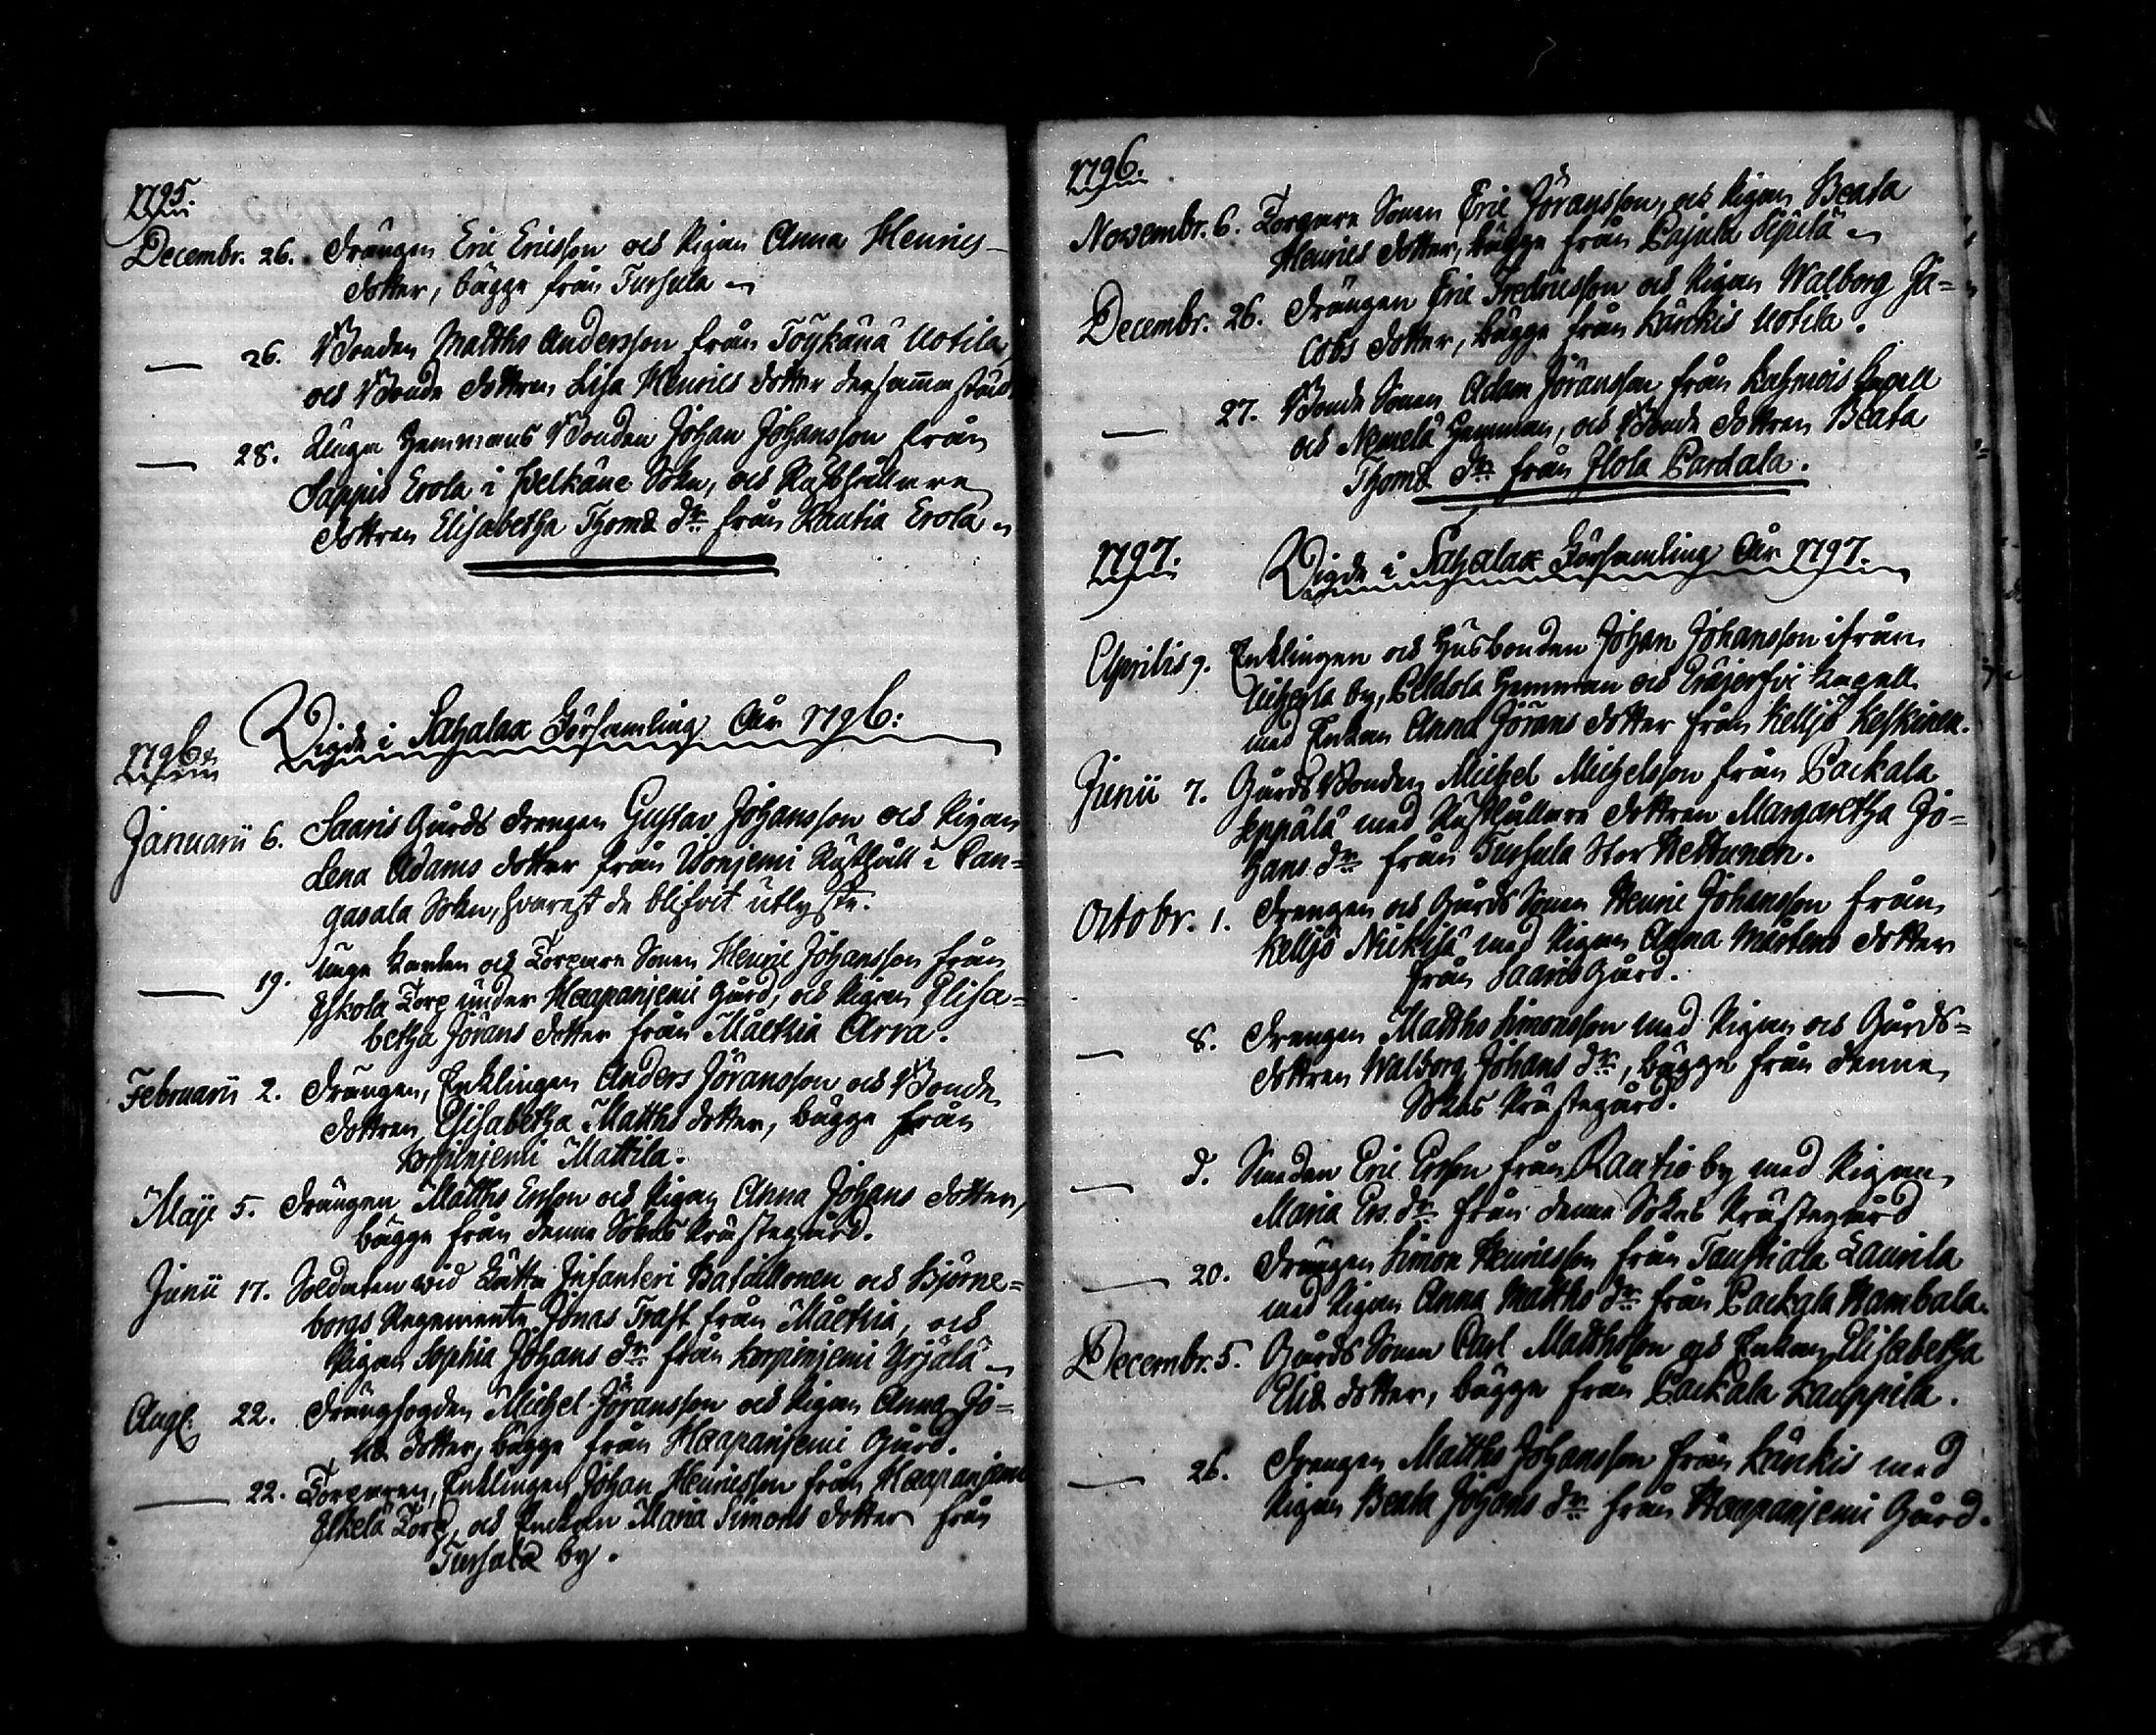 1795.
Decembr. 26. Drängen Eric Ericsson och Pigan Anna Henrics-
dotter, bägge från Tursula
26. Bonden Matths Andersson från Töykänä Uotila,
och Bonde dottren Lisa Henrics dotter dersammastäds
28. Unga Hemmans Bonden Johan Johansson från
Sappis Erola i Pelkäne Sokn, och Rusthållare
dottren Elisabetha Thomæ dr från Rautia Erola
Vigde i Sahalax Församling År 1796:
1796.
Januarii 6. Saaris Gårds drengen Gustav Johansson och Pigan
Lena Adams dotter från Wonjemi Rusthåll i Can-
gasala Sokn, hvarest de blifvit utlyste.
19. Unge Karlen och Torpare Sonen Henric Johansson från
Eskola Torp under Haapanjemi Gård, och Pigan Elisa-
betha Jörans dotter från Måckia Arra.
Februarii 2. Drängen, Enklingen Anders Jöransson och Bonde
dottren Elisabetha Matths dotter, bägge från
Korpinjemi Mattila.
Maji 5. Drängen Matths Ersson och Pigan Anna Johans dotter,
bägge från denne Sokns Prästegård.
Junii 17. Soldaten wid Lätta Infanteri Bataillonen och Björne-
borgs Regemente Jonas Trast från Måckia, och
Pigan Sophia Johans dr från Korpinjemi Yrjälä
Aug. 22. Drängfogden Michel Jöransson och Pigan Anna Jo-
hs dotter, bägge från Haapanjemi Gård.
22. Torparen, Enklingen Johan Henricsson från Haapanjemi
Torp, och Enckan Maria Simons dotter från
Tursula by.
1796.
Novembr. 6. Torpare Sonen Eric Jöransson, och Pigan Beata
Henrics dotter, bägge från Pajula Sipilä
Decembr. 26. Drängen Eric Fredricsson och Pigan Walborg Ja-
cobs dotter, bägge från Känkis Uotila.
27. Bonde Sonen Adam Jöransson från
och Nemelä Hemman, och Bonde dottren Beata
Thomæ dr från Ilola Pardala.
1797. Vigde i Sahalax Församling År 1797.
Aprilis 9. Enklingen och Husbonden Johan Johansson ifrån
by, Peldola Hemman och
med Enkan Anna Jörans dotter från Kelljö Keskinen.
Junii 7. Gårds Bonden Michel Michelsson från Packala
Seppälä med Rusthållare dottren Margaretha Jo-
hans dr från Tursula Stor Hettunen.
Octobr. 1. Drengen och Gårds Sonen Henric Johansson från
Kelljö Nickilä med Pigan Anna Mårtens dotter
från Saaris Gård.
8. Drengen Matths Simonsson med Pigan och Gårds-
dottren Walborg Johans dr, bägge från denne
Sokns Prästegård.
d. Smeden Eric Ersson från Rautio by med Pigan
Maria Ers. dr från denne Sokns Prästegård
20. Drängen Simon Henricsson från Taustiala Laurila
med Pigan Anna Matths dr från Packala Rambala.
Decembr. 5. Gårds Sonen Carl Matthsson och Enkan Elisabetha
Eliæ dotter, bägge från Packala Kauppila.
26. Drengen Matths Johansson från Känkis med
Pigan Beata Johans dr från Haapanjemi Gård.